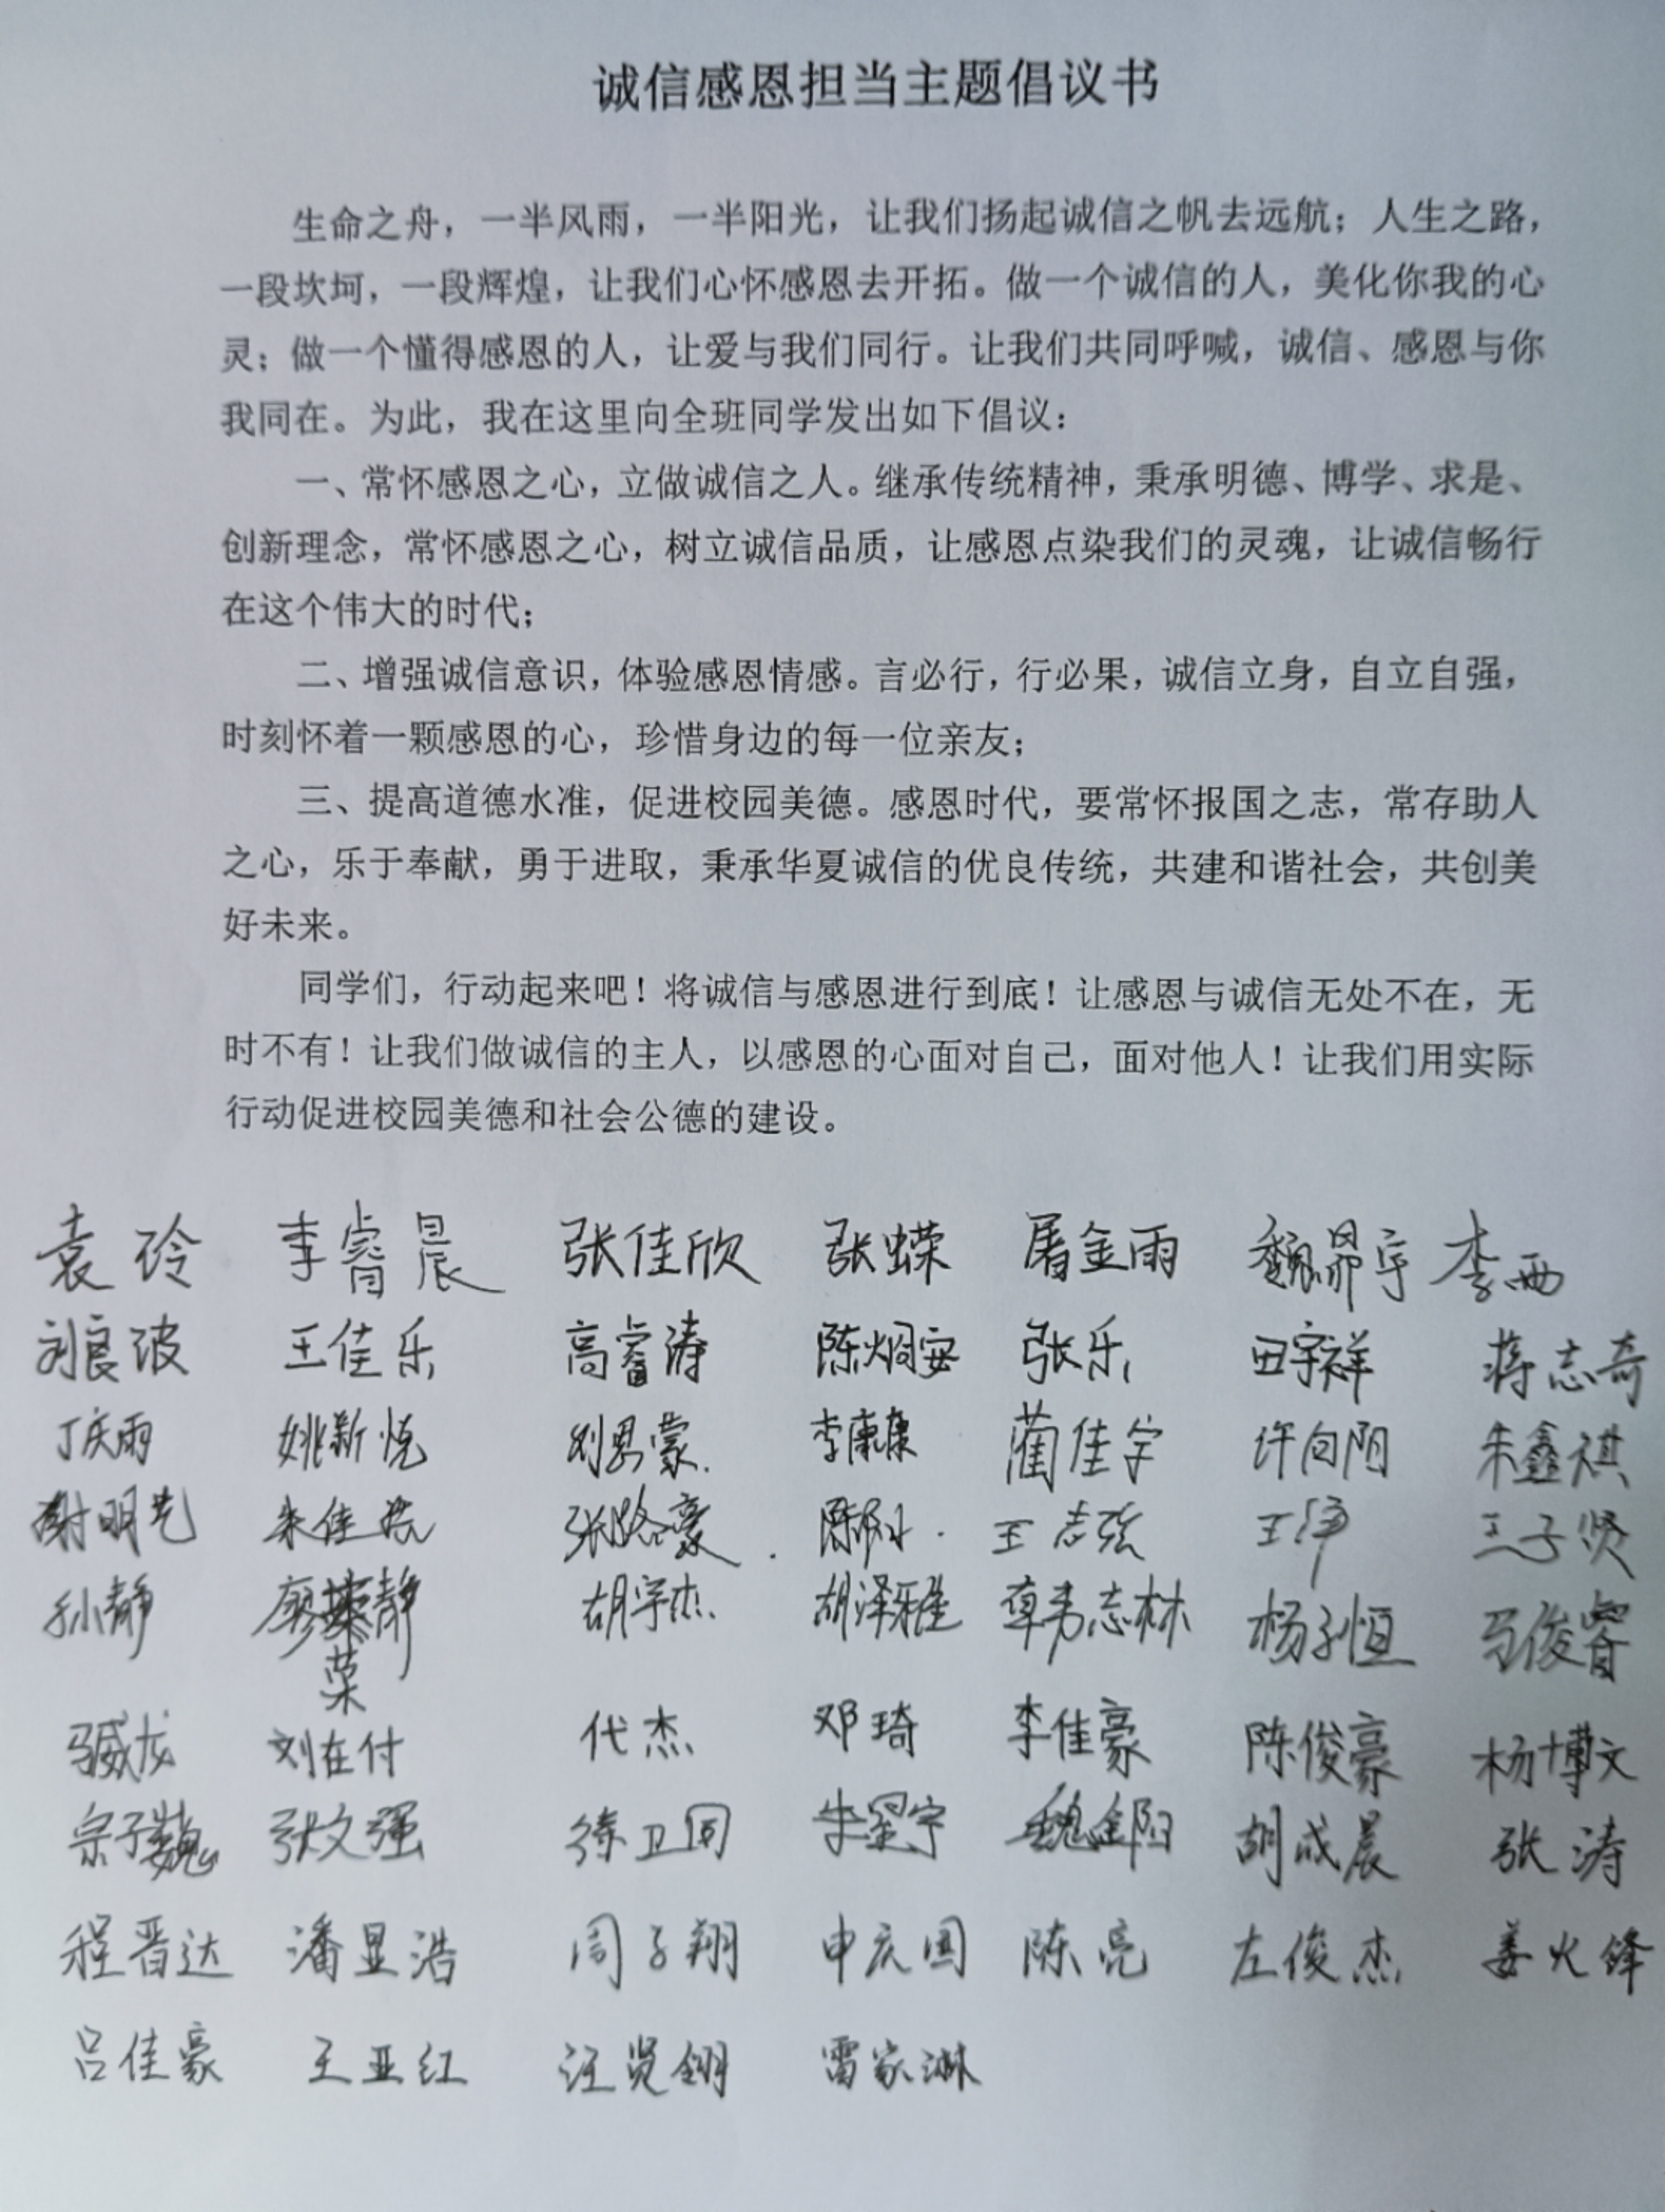 诚信感恩担当主题倡议书
生命之舟，一半风雨，一半阳光，让我们扬起诚信之帆去远航；人生之路，
一段坎坷，一段辉煌，让我们心怀感恩去开拓。做一个诚信的人，美化你我的心
灵；做一个懂得感恩的人，让爱与我们同行。让我们共同呼喊，诚信、感恩与你
我同在。为此，我在这里向全班同学发出如下倡议：
一、常怀感恩之心，立做诚信之人。继承传统精神，秉承明德、博学、求是、
创新理念，常怀感恩之心，树立诚信品质，让感恩点染我们的灵魂，让诚信畅行
在这个伟大的时代；
二、增强诚信意识，体验感恩情感。言必行，行必果，诚信立身，自立自强，
时刻怀着一颗感恩的心，珍惜身边的每一位亲友；
三、提高道德水准，促进校园美德。感恩时代，要常怀报国之志，常存助人
之心，乐于奉献，勇于进取，秉承华夏诚信的优良传统，共建和谐社会，共创美
好未来。
同学们，行动起来吧！将诚信与感恩进行到底！让感恩与诚信无处不在，无
时不有！让我们做诚信的主人，以感恩的心面对自己，面对他人！让我们用实际
行动促进校园美德和社会公德的建设。
袁玲 李睿晨 张佳欣 张蝾 屠金雨 魏昴宇 李西
刘良波 王佳乐 高睿涛 陈炯安 张乐 田宇祥 蒋志奇
丁庆雨 姚新悦 刘恩豪 李康康 蔺佳宇 许向阳 朱鑫祺
谢明艺 张路豪 王志强 王净 王子贤
孙静 廖荣静 胡宇杰 胡泽雅 韦志林 杨子恒 马俊睿
刘在付 代杰 邓琦 李佳豪 陈俊豪 杨博文
宗子巍 张文强 徐卫国 朱星宇 魏金阳 胡成晨 张涛
程晋达 潘显浩 周子翔 申庆国 陈亮 左俊杰 姜火锋
吕佳豪 王亚红 汪贤翎 雷家淋